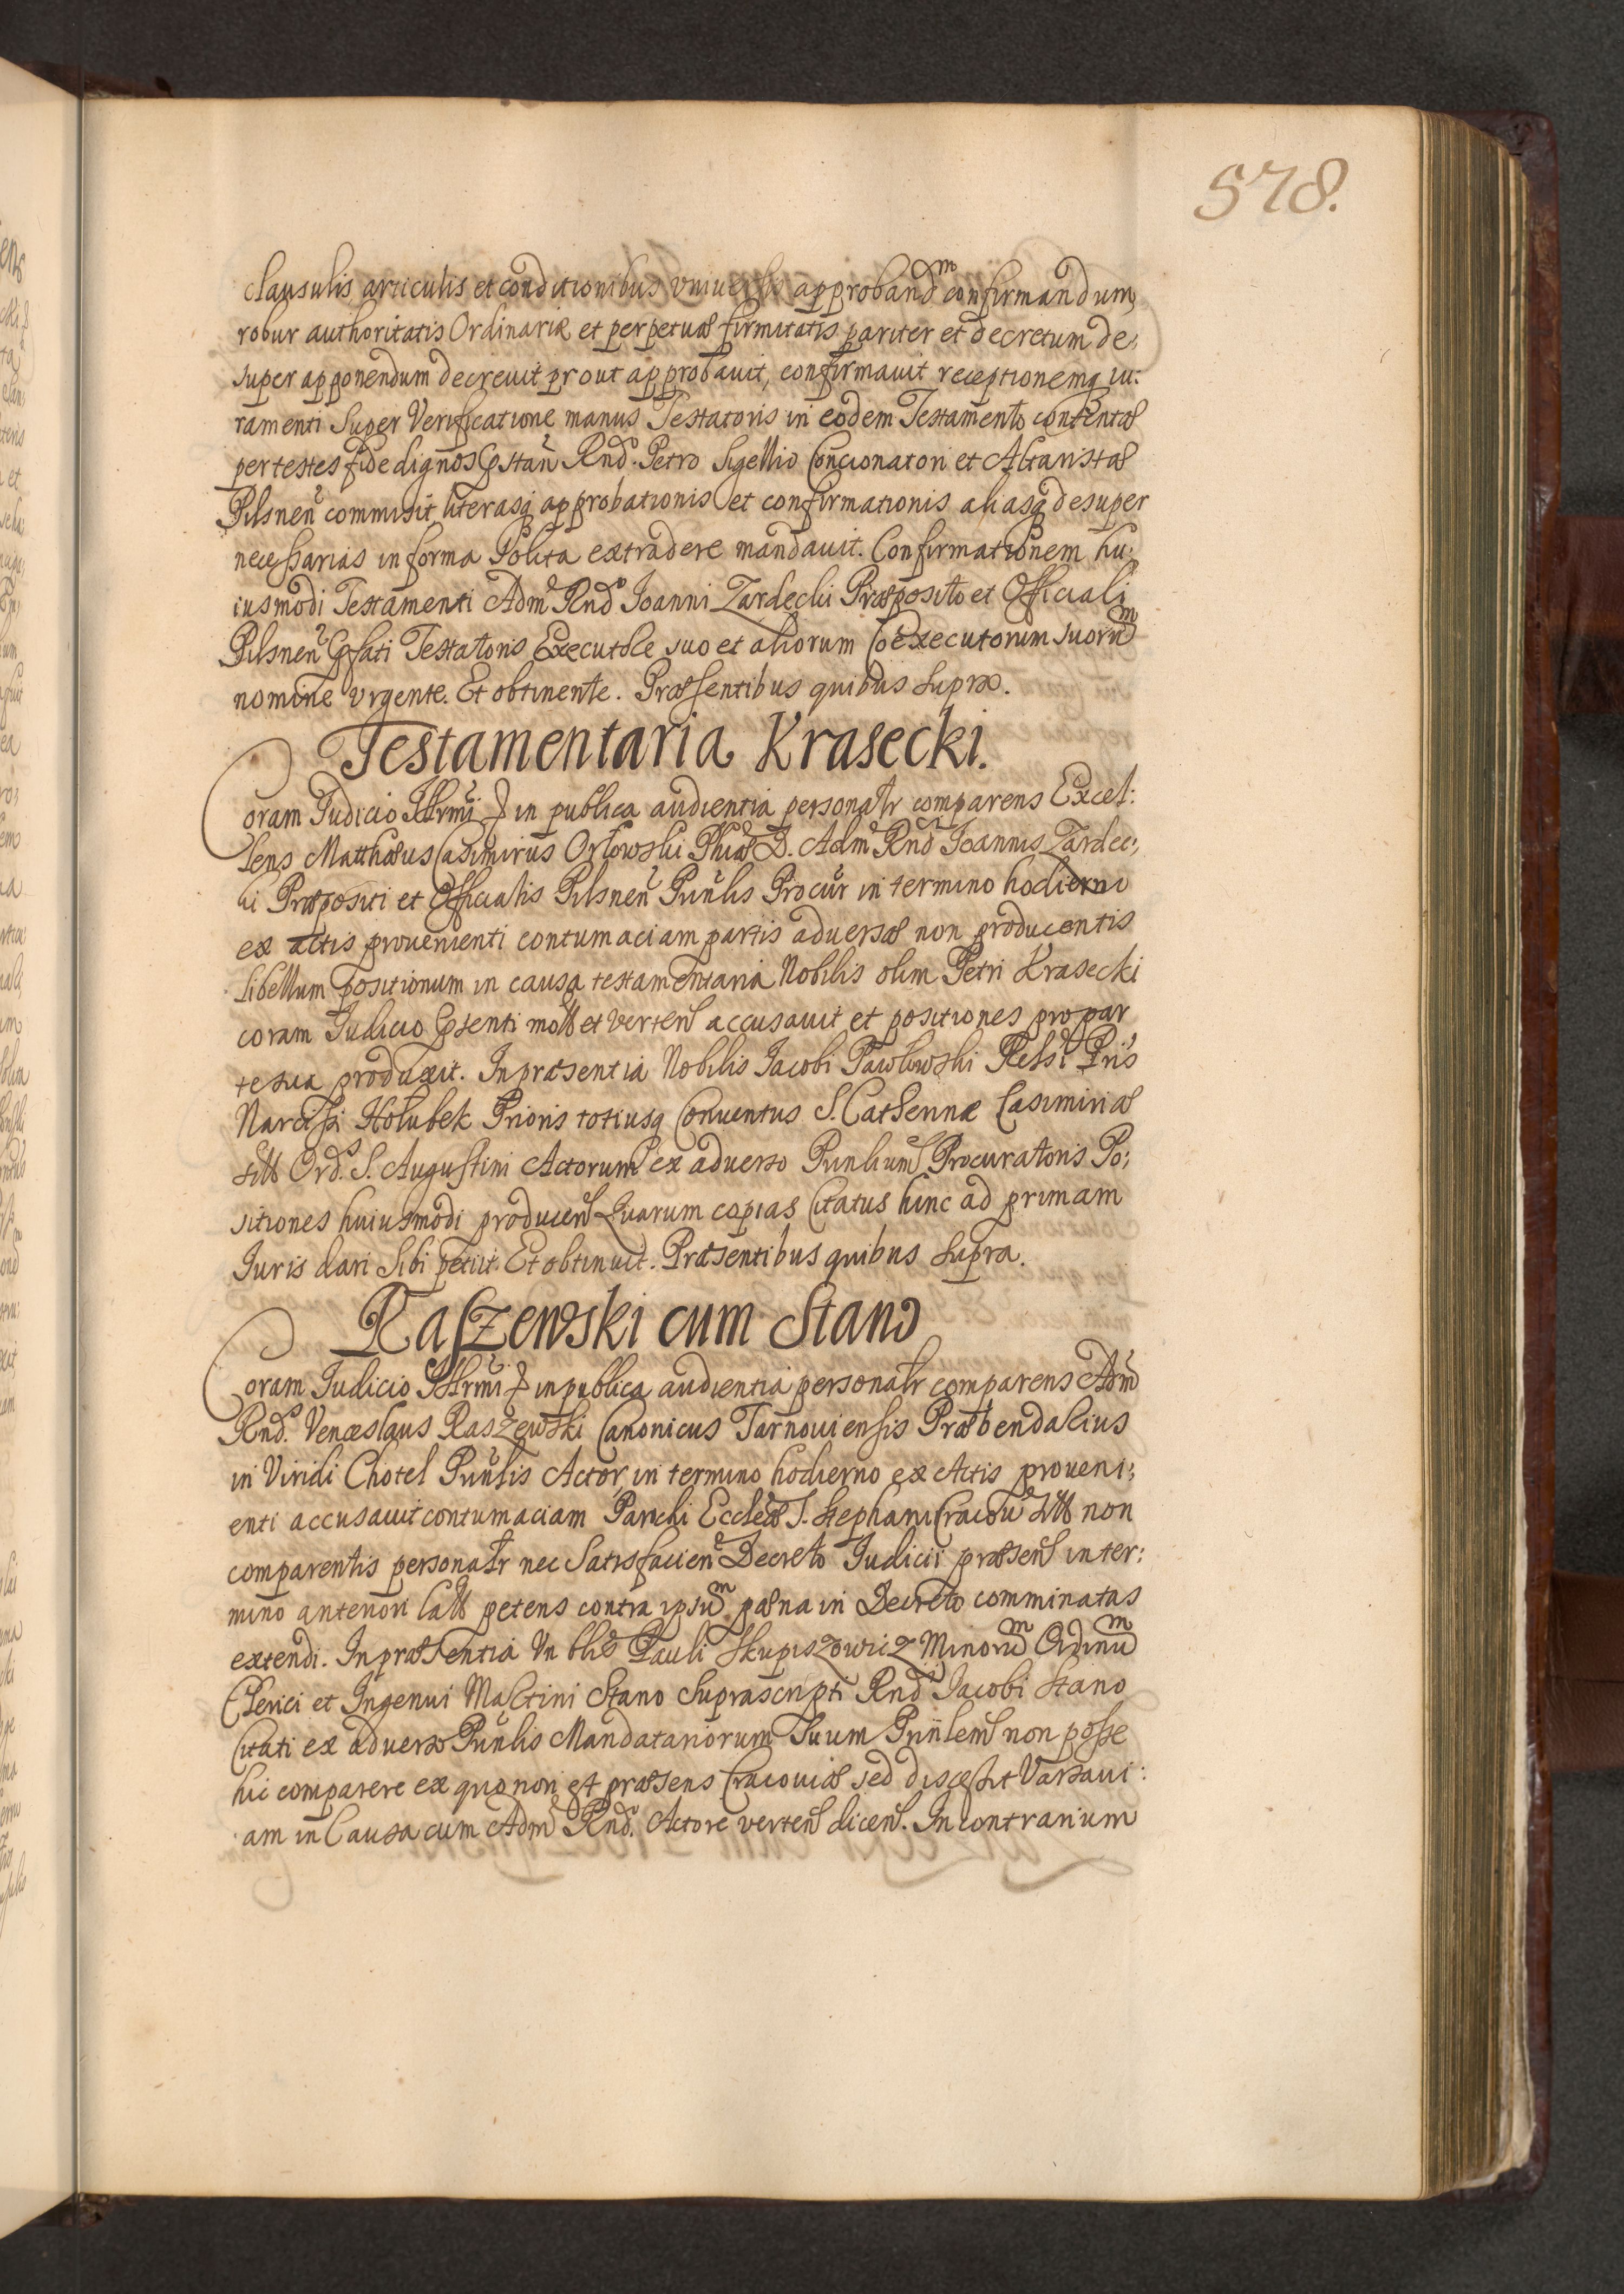 578.
clausulis articulis et conditionibus vniuersis approband^m confirmandum,
robur authoritatis Ordinariæ et perpetuæ firmitatis pariter et decretum de:
super apponendum decreuit prout approbauit, confirmauit receptionemq iu:
ramenti super Verificatione manus Testatoris in eodem Testamento contentæ
per testes fide dignos Rnd. Petro Sigellio Concionatori et Altaristæ
Pilsnen commisit, literasq approbationis et confirmationis aliasq desuper
necessarias in forma Polita extradere mandauit. Confirmationem hu:
iusmodi Testamenti Adm Rnd Ioanni Zardecki Præposito et Officiali
Pilsnen Testatoris Executore suo et aliorum Coexecutorum suorū^m
nomine vrgente. Et obtinente. Præsentibus quibus supra.
Testamentaria Krasecki.
Coram Iudicio Illrmi in publica audientia personalr comparens Excel:
lens Matthæus Casimirus Orłowski Phiæ D. Adm Rndi Ioannis Zardec:
ki Præpositi et Officialis Pilsnen Punlis Procur in termino hodierno
ex actis prouenienti contumaciam partis aduersæ non producentis
libellum positionum in causa testamentaria Nobilis olim Petri Krasecki
coram Iudicio et verten accusauit et positiones pro par
te sua produxit. In præsentia Nobilis Iacobi Pawlowski Relsi Pris
Narcissi Holubek Prioris totiusq Conuentus S. Catherinæ Casimiriæ
Ord. S. Augustini Actorum ex aduerso Punlium Procuratoris Po:
sitiones huiusmodi producen Quarum copias Citatus hinc ad primam
Iuris dari sibi petiit. Et obtinuit. Præsentibus quibus supra.
Raszewski cum Stano
Coram Iudicio Illrmi in publica audientia personalr comparens Adm
Rnd. Venceslaus Raszewski Canonicus Tarnouiensis Præbendarius
in Viridi Chotel Punlis Actor, in termino hodierno ex Actis proueni:
enti accusauit contumaciam Parochi Eccleæ S. Stephani Cracou non
comparentis personalr nec satisfacien Decreto Iudicii præsen in ter:
mino anteriori petens contra ipsū^m pæna in Decreto comminatas
extendi. In præsentia Pauli Skupiszowicz Minorū^m Ordinū^m
Clerici et Ingenui Martini Stano suprascripti Rndi Iacobi Stano
Citati ex aduerso Punlis Mandatariorum suum Prinlem non posse
hic comparere ex quo non est præsens Cracouiæ sed discessit Varsaui:
am in Causa cum Adm Rnd. Actore verten dicen. In contrarium